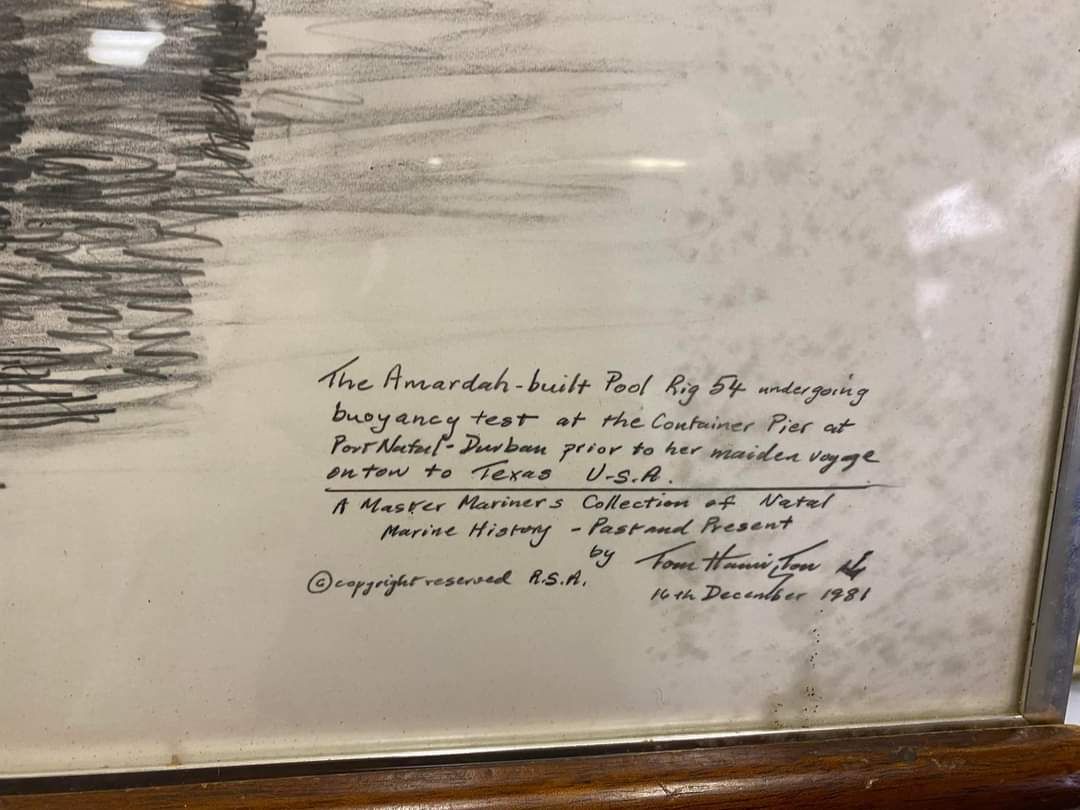 The Amardah-built Pool Rig 54 undergoing
buoyancy test at the Container Pier at
Port Natal-Durban prior to her maiden voyage
on tow to Texas U-S.A.
A Master Mariners Collection of Natal
Marine History - Past and Present
by Tom Hamilton
©copyright reserved R.S.A.
16th December 1981